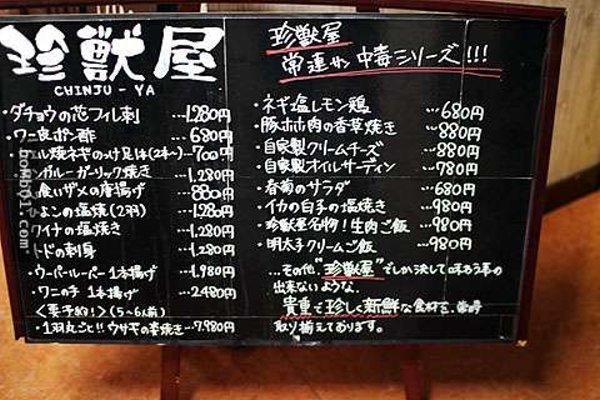 珍獣屋
CHINJU-YA
・ダチョウの芯フィレ刺 …1,280円
・ワニ皮ポン酢 …680円
ル焼ネギのっけ足体(2本~) …700円
ンガルーガーリック焼き …1,280円
食いザメの唐揚げ …880円
よこの塩焼(2羽) …1,280円
ワイナの塩焼き …1,280円
・トドの刺身 …1,280円
・ウーパールーパー1本揚げ …1,980円
・ワニの手 1本揚げ …2,480円
<要予約!>(5~6人前)
・1羽丸ごと!!ウサギの姿焼き…7,980円
珍獣屋
常連さん中毒シリーズ!!!
・ネギ塩レモン鶏 …680円
・豚ホホ肉の香草焼き …880円
・自家製クリームチーズ …880円
・自家製オイルサーディン …780円
・春菊のサラダ …680円
・イカの白子の塩焼き …980円
・珍獣屋名物!生肉ご飯 …980円
・明太子クリームご飯 …980円
…その他"珍獣屋"でしか決して味わう事の
出来ないような、
貴重で珍しく新鮮な食材を、常時
取り揃えております。
bomb01.com